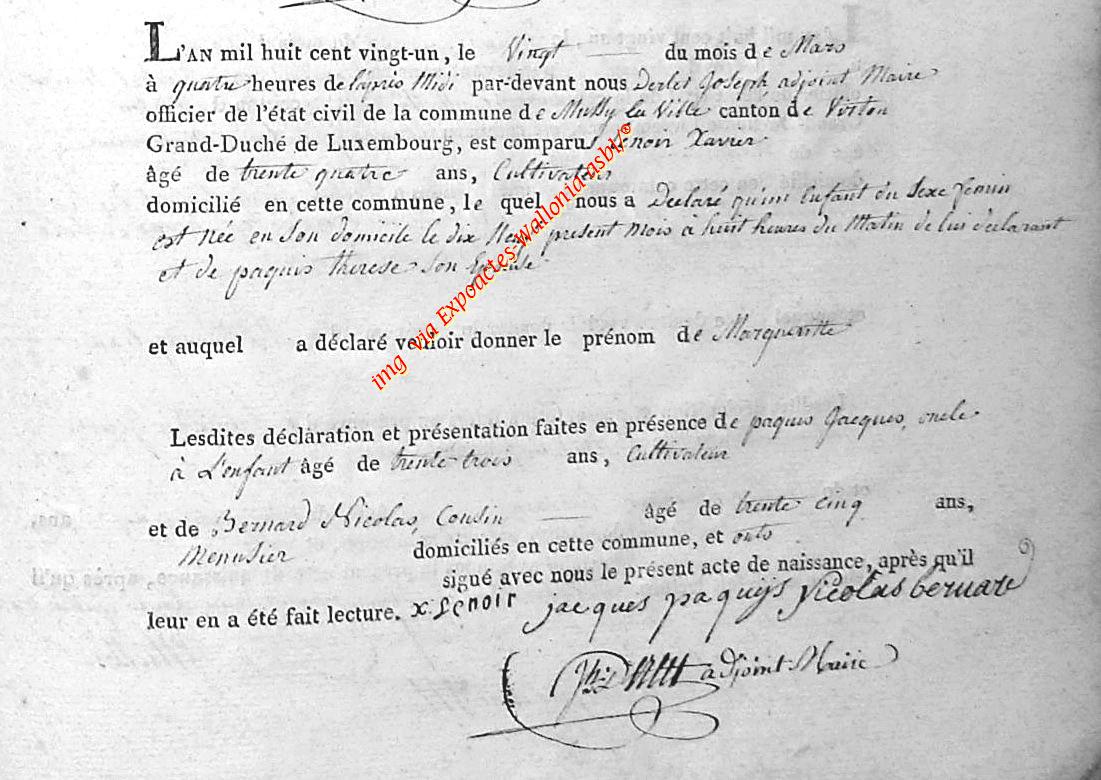 L'AN mil huit cent vingt-un, le Vingt du mois de Mars
à quatre heures de l'après Midi par-devant nous Derlet Joseph, adjoint Maire
officier de l'état civil de la commune de Mussy la Ville canton de Virton
Grand-Duché de Luxembourg, est comparu Lenoir Xavier
âgé de trente quatre ans, Cultivateur
domicilié en cette commune, le quel nous a Declaré qu'un Enfant du Sexe féminin
est née en Son domicile le dix present Mois à huit heures du Matin de lui declarant
et de paquis therese Son Epouse
et auquel a déclaré vouloir donner le prénom de Margueritte
Lesdites déclaration et présentation faites en présence de paquis Jacques, oncle
à L'enfant âgé de trente trois ans, Cultivateur
et de Bernard Nicolas, Cousin âgé de trente cinq ans,
Menusier domiciliés en cette commune, et onts
signé avec nous le présent acte de naissance, après qu'il
leur en a été fait lecture. x. Lenoir jacques paquijs Nicolas bernard
adjoint Maire
img via Expoactes-Wallonia-asbl/©